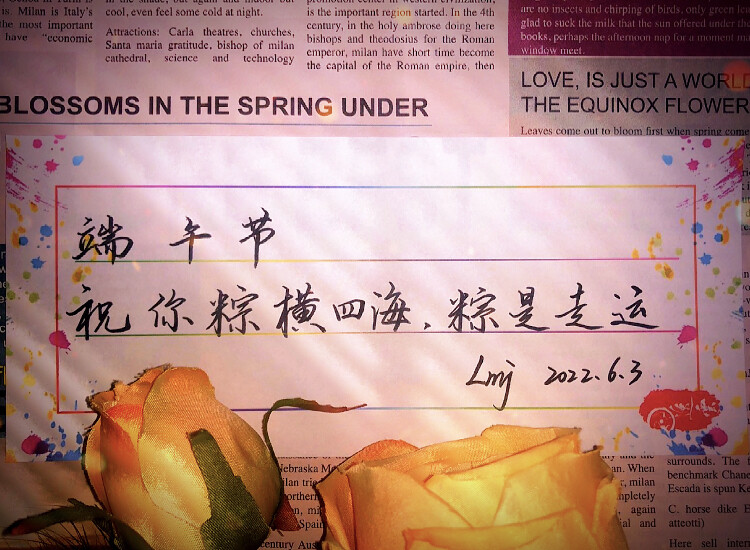 is. Milan is Italy's
the most important
have "economic
cool, even feel some cold at night.
Attractions: Carla theatres, churches,
Santa maria gratitude, bishop of milan
cathedral, science and technology
is the important region started. In the 4th
century, in the holy ambrose doing here
bishops and theodosius for the Roman
emperor, milan have short time become
the capital of the Roman empire, then
are no insects and chirping of birds, only green
glad to suck the milk that the sun offered under
books, perhaps the afternoon nap for a moment
window meet.
BLOSSOMS IN THE SPRING UNDER
LOVE, IS JUST A WORL
THE EQUINOX FLOWER
Leaves come out to bloom first when spring come
端午节
祝你粽横四海,粽是走运
Lmj 2022.6.3
Nebraska
century
an. When
milan
again
surrounds. The
benchmark Chane
Escada is spun Ke
C. horse dike
atteotti)
Here sell inter